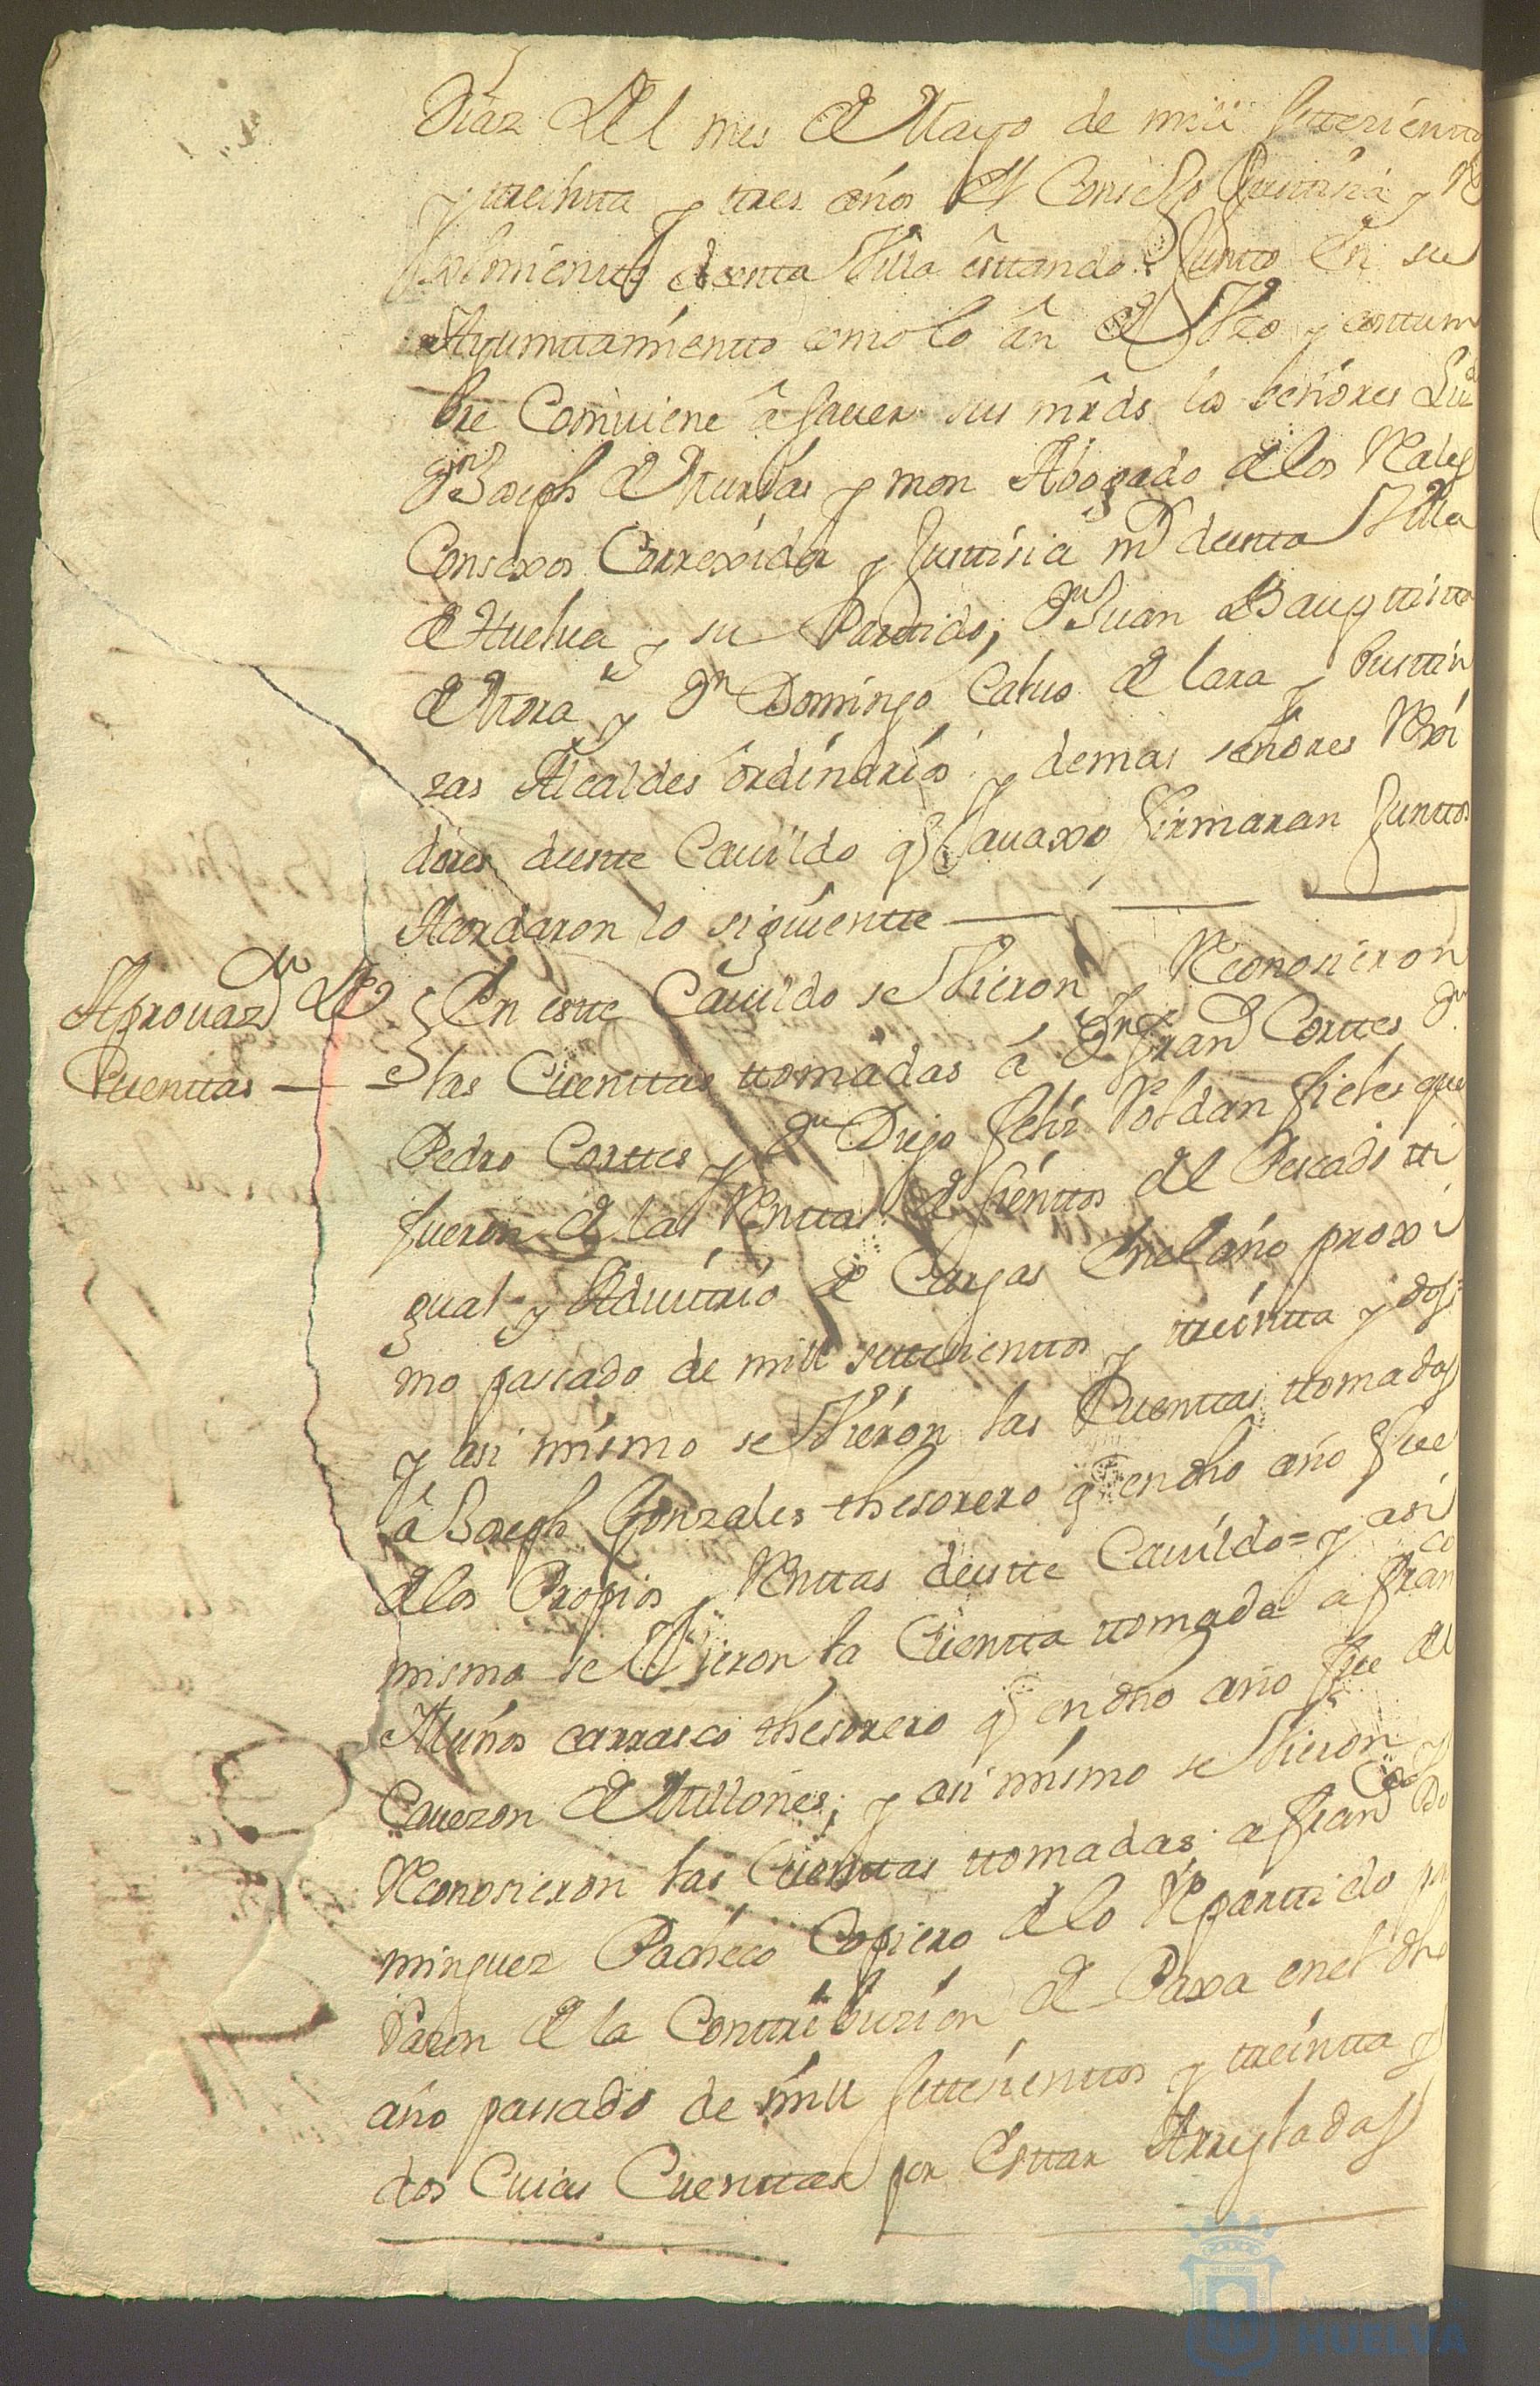 Diaz del mes de Mayo de mill settesientos
y treintta y tres años el Consejo Justisia y Re
ximientto destta Villa esttando Juntto en su
Ayunttamientto como lo an de Vso y costtum
bre Combiene â sauer sus mrds los señores Liz.do
Dn Joseph de Murias y mon Abogado de los Rales
Consexos Correxidor y Justtisia mr destta Villa
de Huelua y su Parttido, Dn Juan Baupttistta
de Mora y Dn Domingo Calbo de lara y
zas Alcaldes ordinarios y demas señores Rexi
dores destte Cauildo q auaxo firmaran Junttos
Acordaron lo siguientte
Aprouazon de
Cuenttas
En estte Cauildo se Vieron y Reconosieron
las Cuenttas ttomadas â Dn Franco Corttes Dn
Pedro Corttes y Dn Diego feliz Roldan fieles que
fueron de las Renttas de sienttos del Pescado tti
gual y Aduittrio de Cargas en el año proxi
mo passado de mill settesienttos y treintta y dos
y asi mismo se Vieron las Cuenttas ttomadas
â Joseph Gonzales thesorero q en dho año fue
de los Propios y Renttas destte Cauildo = y asi
mismo se Vieron la Cuentta ttomada a Franco
Muños carrasco thesorero q en dho año fue del
Cauezon de Millones; y asi mismo se Vieron y
Reconosieron las Cuenttas ttomadas a Franco Do
minguez Pacheco Copiero de lo Reparttido pr
razon de la Conttribuzion de Paxa en el dho
año passado de mill settesienttos y treintta y
dos Cuias Cuenttas por Esttar Arregladas
Ayuntamiento de
HUELVA